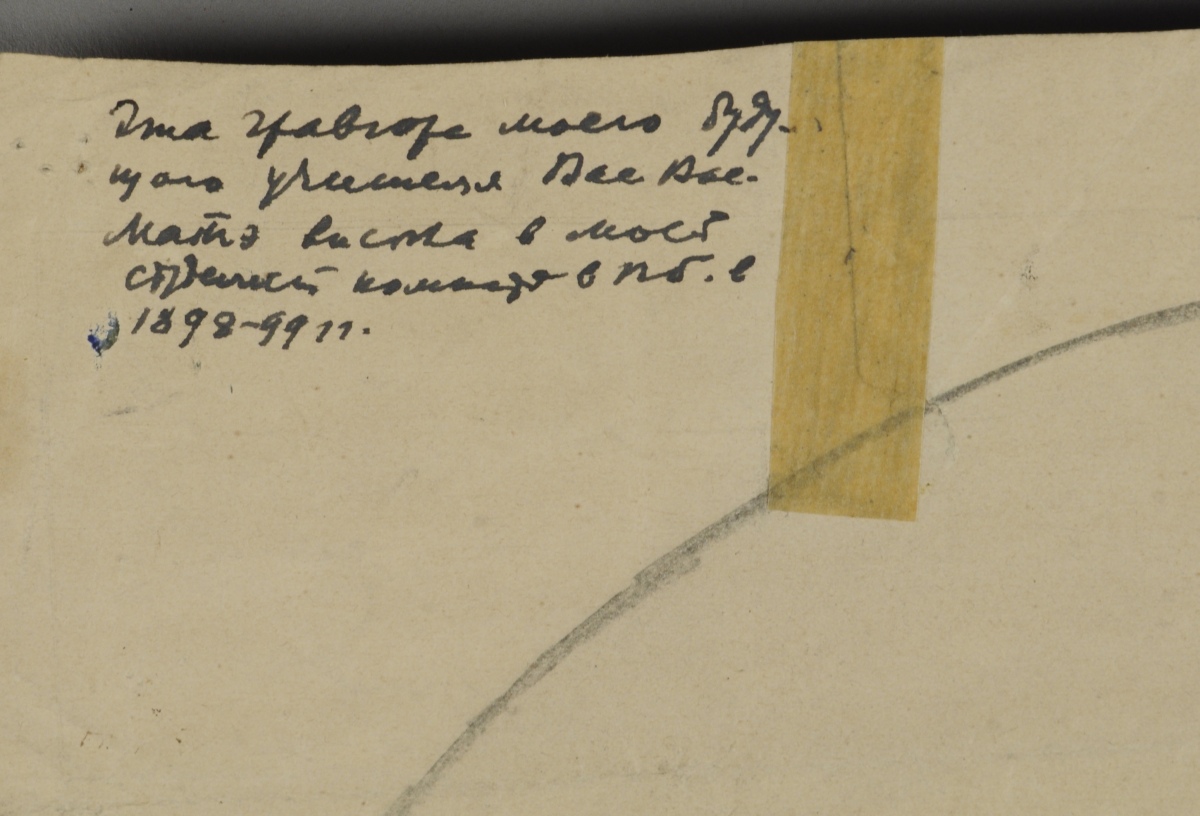 Эта гравюра моего буду-
щого учителя Вас Вас.
Матэ висела в моей
студенческ комнате в Пб. в
1898-99 гг.